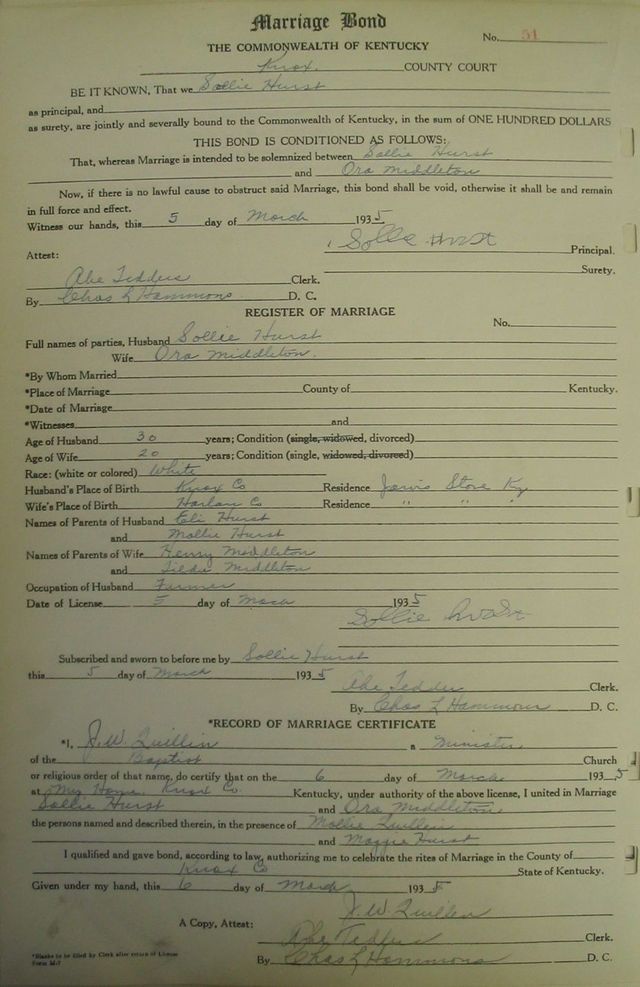 Marriage Bond
No. 51
THE COMMONWEALTH OF KENTUCKY
Knox COUNTY COURT
BE IT KNOWN, That we Sollie Hurst
as principal, and
as surety, are jointly and severally bound to the Commonwealth of Kentucky, in the sum of ONE HUNDRED DOLLARS
THIS BOND IS CONDITIONED AS FOLLOWS:
That, whereas Marriage is intended to be solemnized between Sollie Hurst
and Ora Middleton
Now, if there is no lawful cause to obstruct said Marriage, this bond shall be void, otherwise it shall be and remain
in full force and effect.
Witness our hands, this 5 day of March 1935
Sollie Hurst Principal.
Attest:
Surety.
Abe Tedders Clerk.
By Chas L Hammons D. C.
REGISTER OF MARRIAGE
No.
Full names of parties, Husband Sollie Hurst
Wife Ora Middleton.
*By Whom Married
*Place of Marriage County of Kentucky.
*Date of Marriage
*Witnesses and
Age of Husband 30 years; Condition (single, widowed, divorced)
Age of Wife 20 years; Condition (single, widowed, divorced)
Race: (white or colored) White
Husband's Place of Birth Knox Co Residence Jarvis Store Ky
Wife's Place of Birth Harlan Co Residence " " "
Names of Parents of Husband Eli Hurst
and Mollie Hurst
Names of Parents of Wife Henry Middleton
and Tilda Middleton
Occupation of Husband Farmer
Date of License 5 day of March 1935
Sollie Hurst
Subscribed and sworn to before me by Sollie Hurst
this 5 day of March 1935
Abe Tedders Clerk.
By Chas L Hammons D. C.
*RECORD OF MARRIAGE CERTIFICATE
*I, J. W. Quillin a Minister
of the Baptist Church
or religious order of that name, do certify that on the 6 day of March 1935
at My Home, Knox Co. Kentucky, under authority of the above license, I united in Marriage
Sollie Hurst and Ora Middleton
the persons named and described therein, in the presence of Mollie Quillen
and Maggie Hurst
I qualified and gave bond, according to law, authorizing me to celebrate the rites of Marriage in the County of
Knox Co State of Kentucky.
Given under my hand, this 6 day of March 1935
J. W. Quillen
A Copy, Attest:
Abe Tedders Clerk.
*Blanks to be filled by Clerk after return of License
Form M-7
By Chas L Hammons D. C.